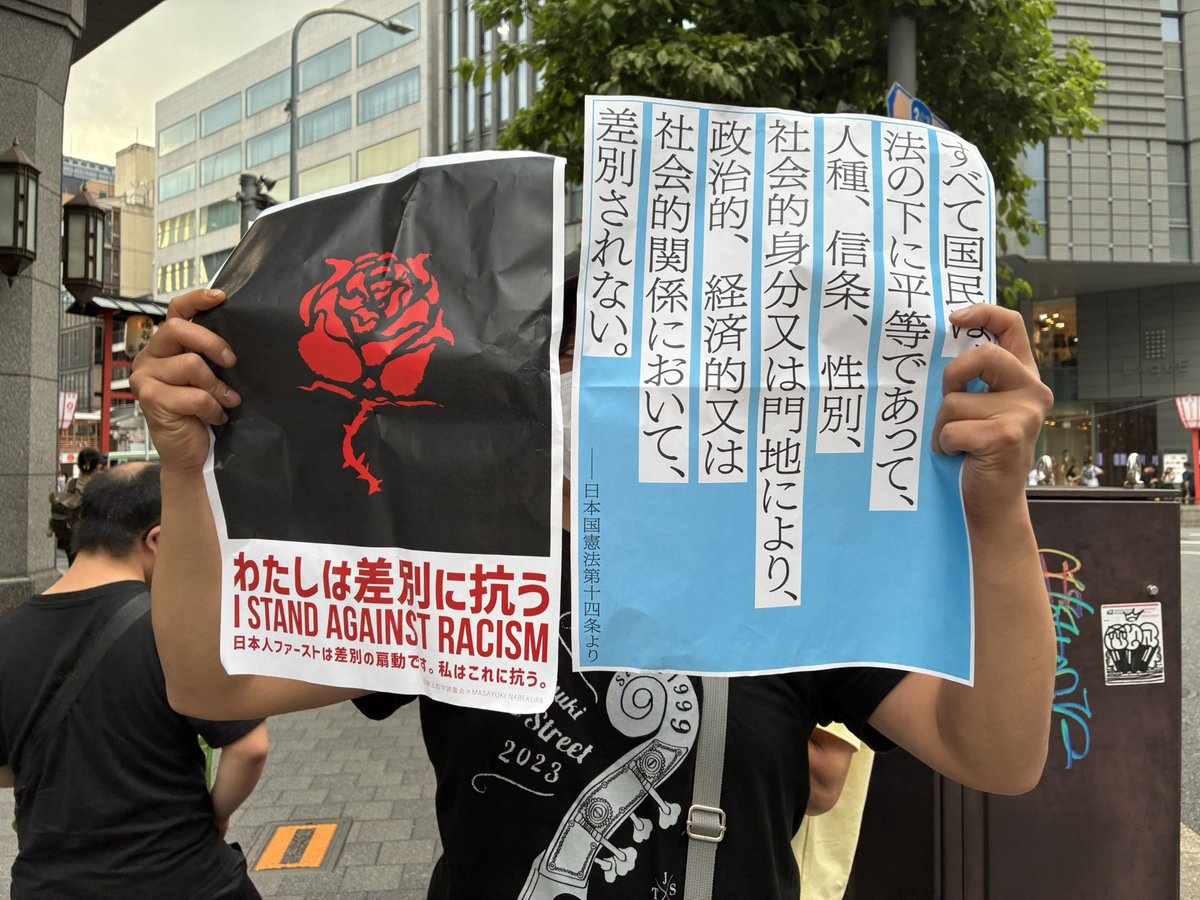 わたしは差別に抗う
I STAND AGAINST RACISM
日本人ファーストは差別の扇動です。私はこれに抗う。
×MASAYUKI NABEKURA
すべて国民は、
法の下に平等であって、
人種、信条、性別、
社会的身分又は門地により、
政治的、経済的又は
社会的関係において、
差別されない。
──日本国憲法第十四条より
Street
2023
1999
T J S